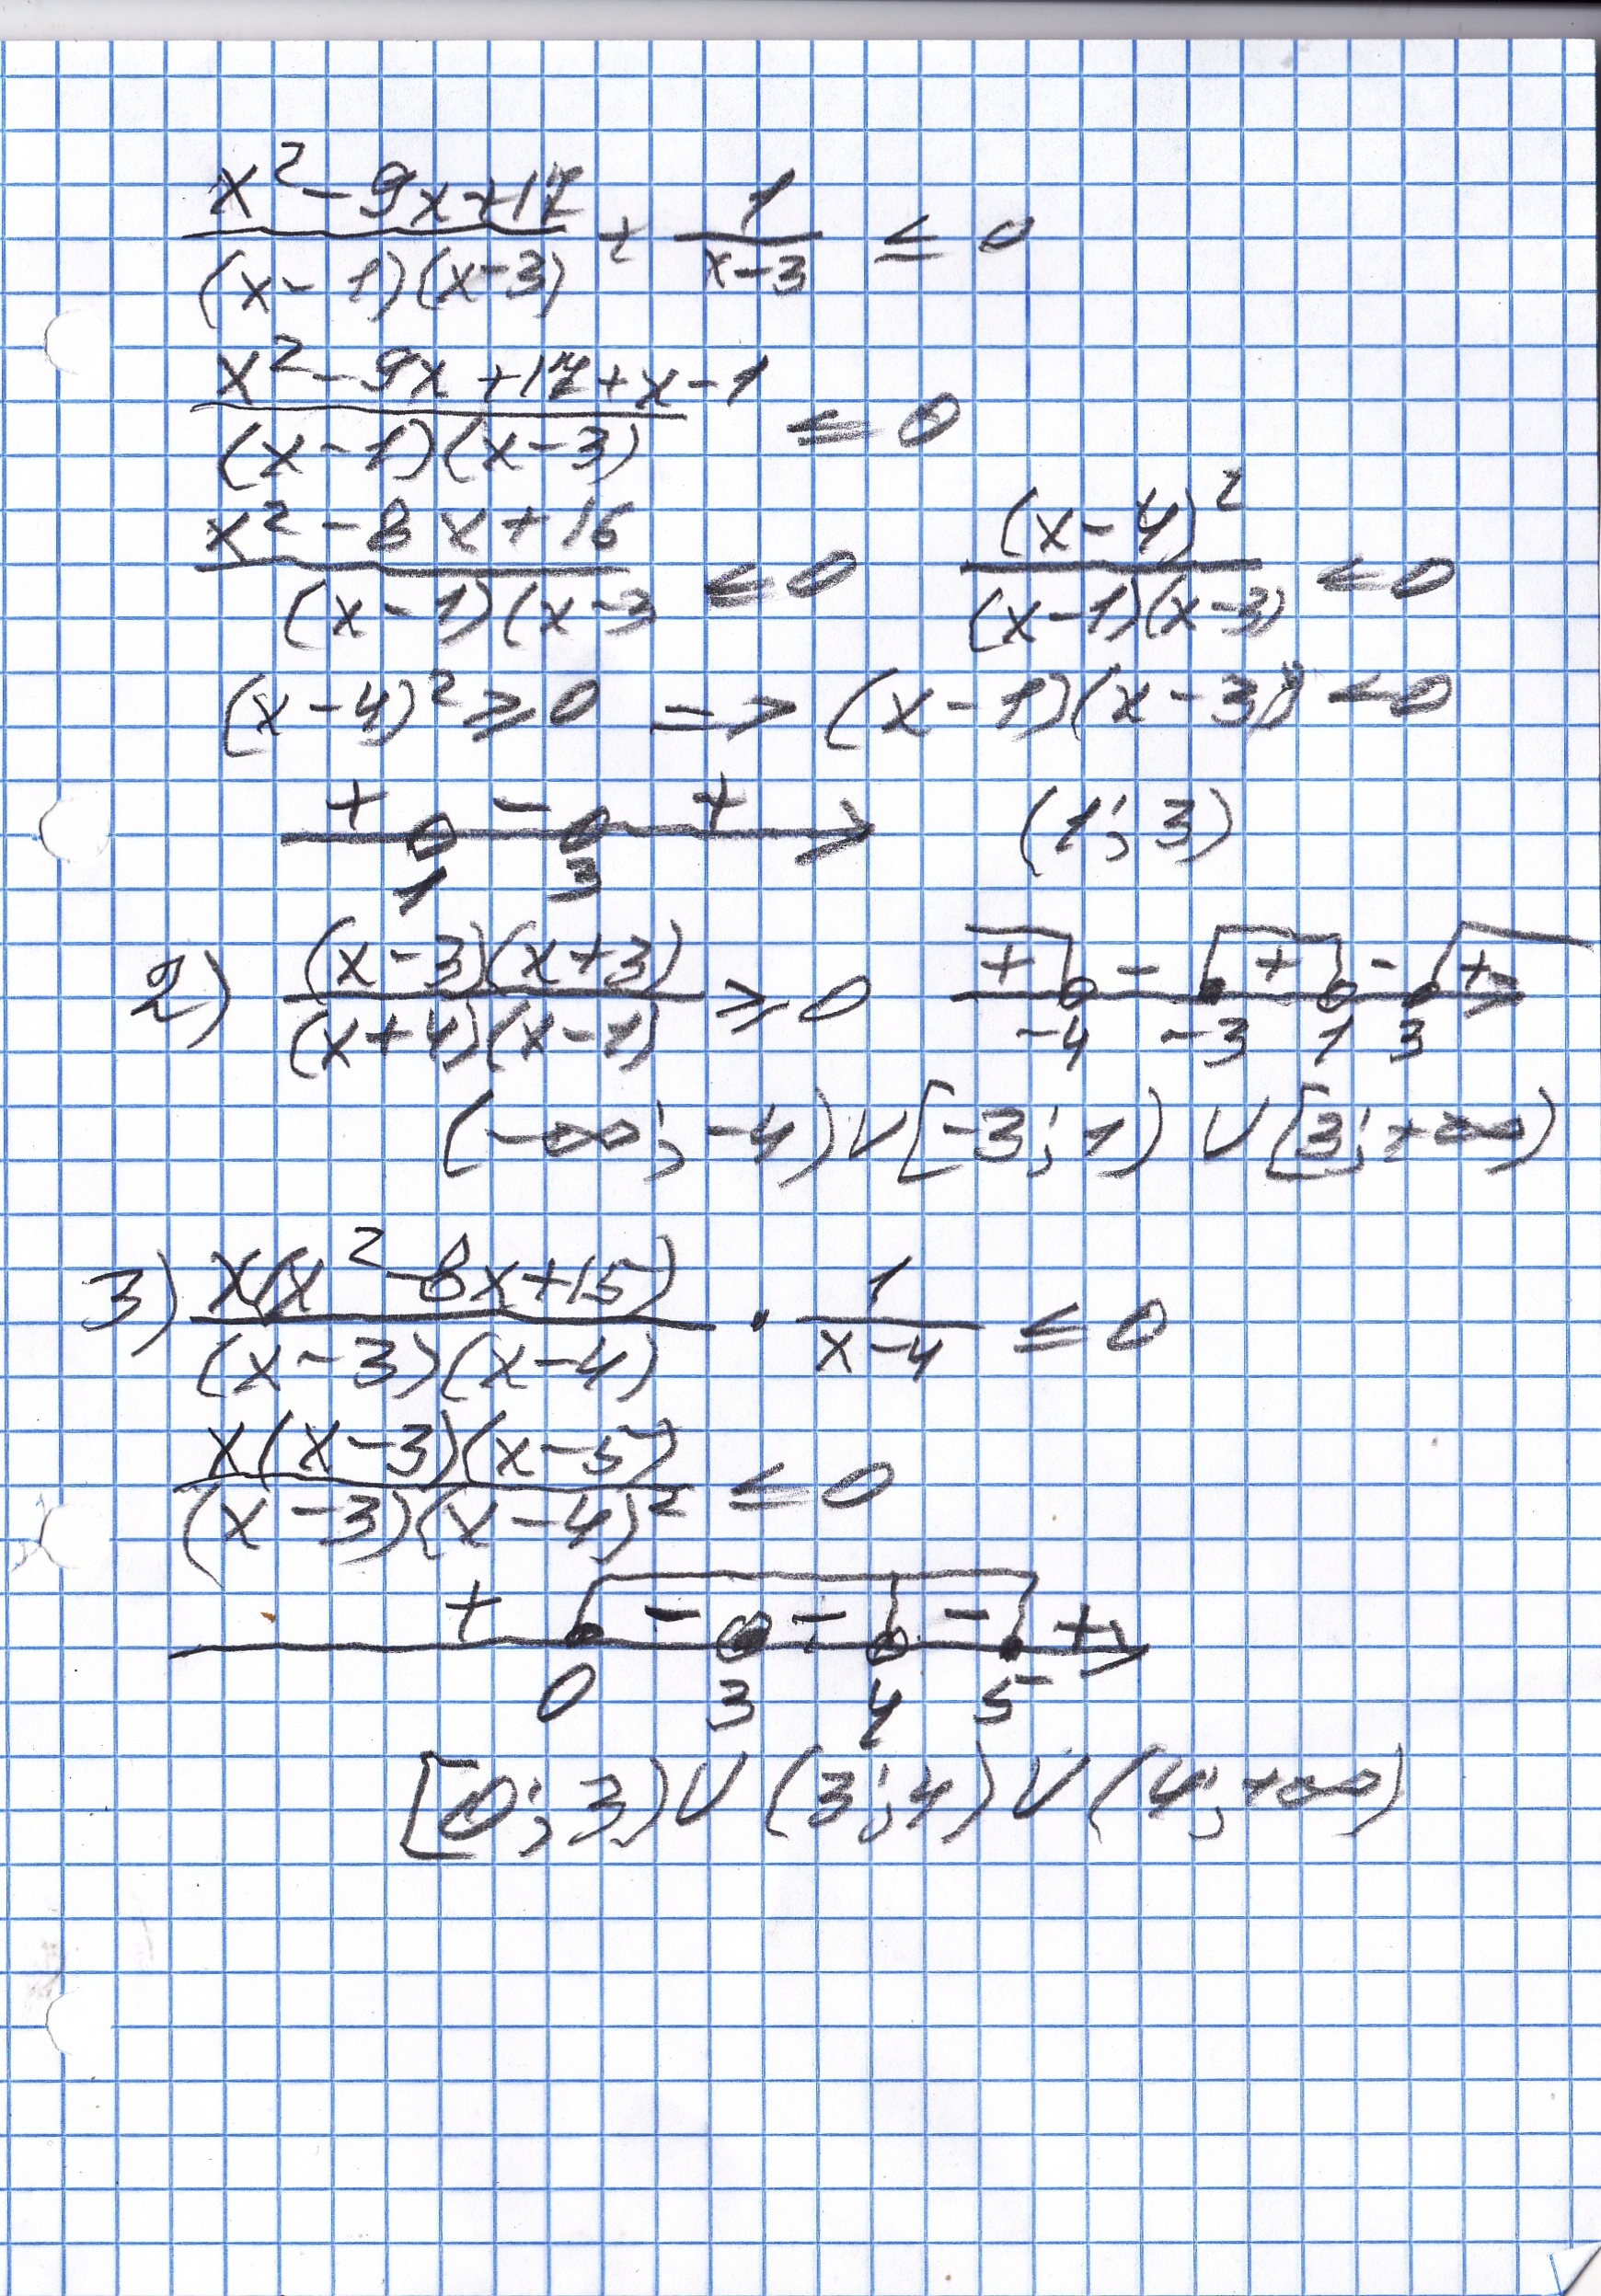 (x² - 9x + 17)/((x - 1)(x - 3)) + 1/(x - 3) ≤ 0
(x² - 9x + 17 + x - 1)/((x - 1)(x - 3)) ≤ 0
(x² - 8x + 16)/((x - 1)(x - 3) ≤ 0    (x - 4)²/((x - 1)(x - 3)) ≤ 0
(x - 4)² ≥ 0 => (x - 1)(x - 3) < 0
+ - +    (1; 3)
1 3
2) ((x - 3)(x + 3))/((x + 4)(x - 1)) ≥ 0    + - + - +
-4 -3 1 3
(-∞; -4) ∪ [-3; 1) ∪ [3; +∞)
3) (x(x² - 8x + 15))/((x - 3)(x - 4)) · 1/(x - 4) ≤ 0
(x(x - 3)(x - 5))/((x - 3)(x - 4)²) ≤ 0
+ - - - +
0 3 4 5
[0; 3) ∪ (3; 4) ∪ (4; +∞)